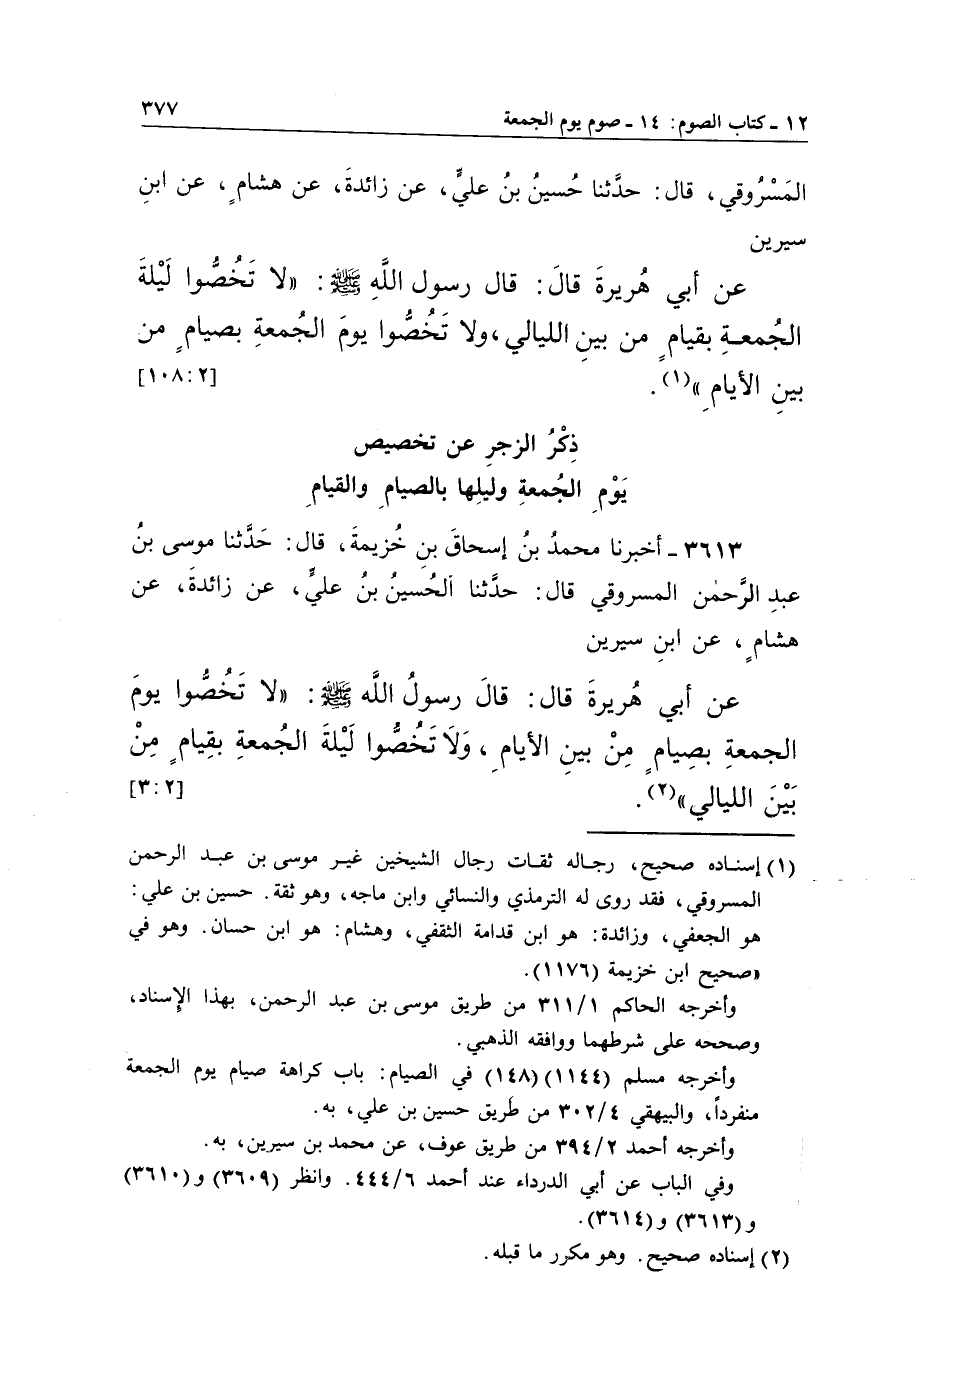 ١٢ ـ كتاب الصوم: ١٤ ـ صوم يوم الجمعة ٣٧٧
المَسْرُوقي، قال: حدَّثنا حُسينُ بنُ عليٍّ، عن زائدةَ، عن هشامٍ، عن ابنِ
سيرين
عن أبي هُريرةَ قالَ: قال رسول اللَّهِ ﷺ: «لا تَخُصُّوا لَيْلةَ
الجُمعـةِ بقيامٍ من بينِ الليالي،ولا تَخُصُّوا يومَ الجُمعةِ بصيامٍ من
بينِ الأيامِ»(١). [١٠٨:٢]
ذِكْرُ الزجرِ عن تخصيص
يَوْمِ الجُمعةِ وليلِها بالصيامِ والقيامِ
٣٦١٣ ـ أخبرنا محمدُ بنُ إسحاقَ بنِ خُزيمةَ، قال: حَدَّثنا موسى بنُ
عبدِ الرَّحمٰن المسروقي قال: حدَّثنا الحُسينُ بنُ عليٍّ، عن زائدةَ، عن
هشامٍ، عن ابنِ سيرين
عن أبي هُريرةَ قال: قالَ رسولُ اللَّه ﷺ: «لا تَخُصُّوا يومَ
الجمعةِ بصِيامٍ مِنْ بينِ الأيامِ، وَلَا تَخُصُّوا لَيْلةَ الجُمعةِ بقِيامٍ مِنْ
بَيْنَ الليالي»(٢). [٣:٢]
(١) إسنـاده صحيح، رجـاله ثقـات رجال الشيخين غيـر موسى بن عبـد الرحمن
المسروقي، فقد روى له الترمذي والنسائي وابن ماجه، وهو ثقة. حسين بن علي:
هو الجعفي، وزائدة: هو ابن قدامة الثقفي، وهشام: هو ابن حسان. وهو في
«صحيح ابن خزيمة (١١٧٦).
وأخرجه الحاكم ٣١١/١ من طريق موسى بن عبد الرحمن، بهذا الإسناد،
وصححه على شرطهما ووافقه الذهبي.
وأخرجه مسلم (١١٤٤)(١٤٨) في الصيام: باب كراهة صيام يوم الجمعة
منفرداً، والبيهقي ٣٠٢/٤ من طريق حسين بن علي، به.
وأخرجه أحمد ٣٩٤/٢ من طريق عوف، عن محمد بن سيرين، به.
وفي الباب عن أبي الدرداء عند أحمد ٤٤٤/٦. وانظر (٣٦٠٩) و(٣٦١٠)
و(٣٦١٣) و(٣٦١٤).
(٢) إسناده صحيح. وهو مكرر ما قبله.